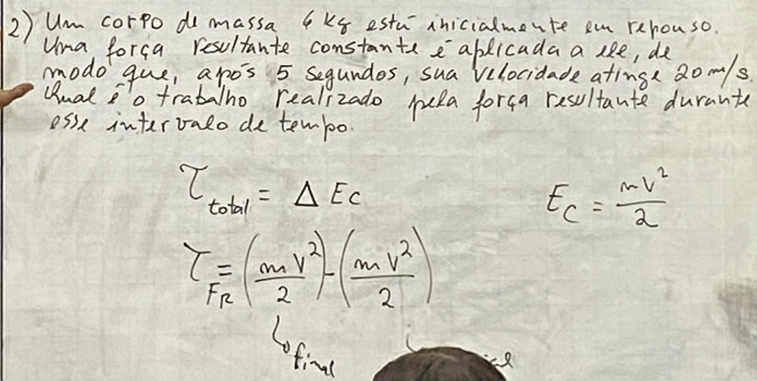 2) Um corpo de massa 6 kg está inicialmente em repouso.
Uma força resultante constante é aplicada a ele, de
modo que, após 5 segundos, sua velocidade atinge 20 m/s.
Qual é o trabalho realizado pela força resultante durante
esse intervalo de tempo.
τ total = Δ Ec
E_C = mv²/2
τ_FR = (mv²/2) - (mv²/2)
↳ final